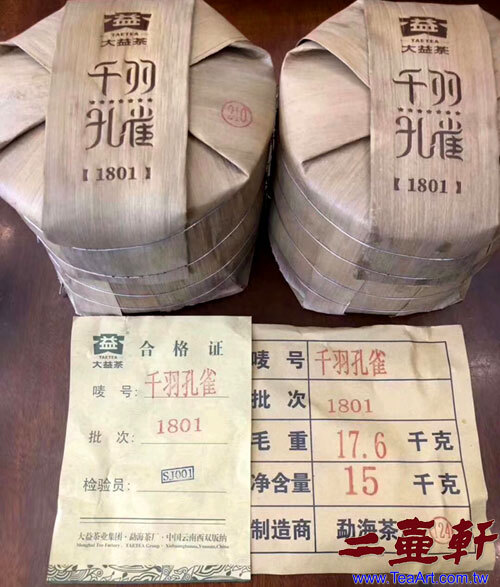 益
TAETEA
大益茶
千羽
孔雀
【1801】
210
益
TAETEA
大益茶
千羽
孔雀
【1801】
益
TAETEA
大益茶
合格证
唛号：千羽孔雀
批次：1801
检验员：SJ001
大益茶业集团·勐海茶厂·中国云南西双版纳
Menghai Tea Factory, TAETEA Group, Xishuangbanna, Yunnan, China
唛号 千羽孔雀
批次 1801
毛重 17.6 千克
净含量 15 千克
制造商 勐海茶
124
二壺軒
www.TeaArt.com.tw